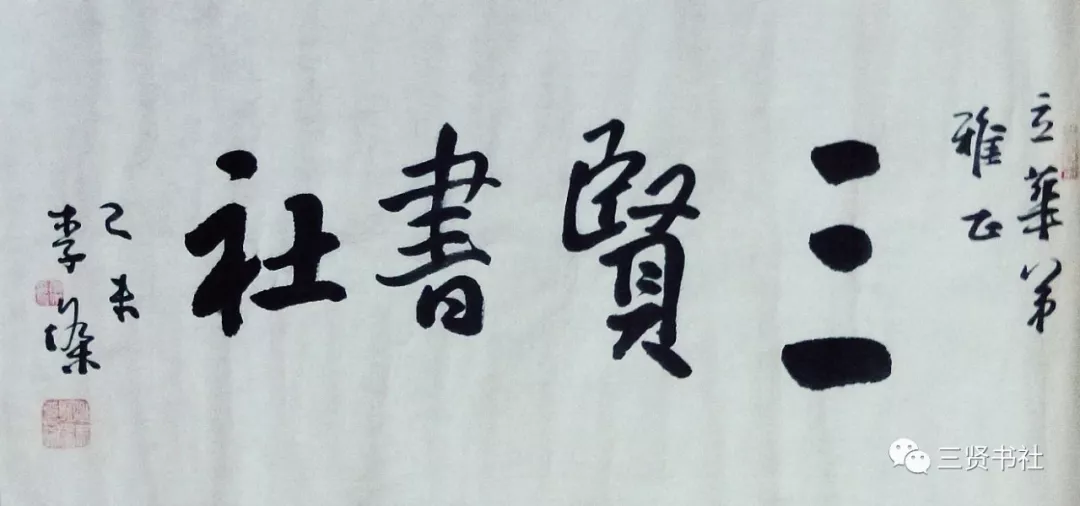 立華弟
雅正
三賢書社
未
李
三贤书社